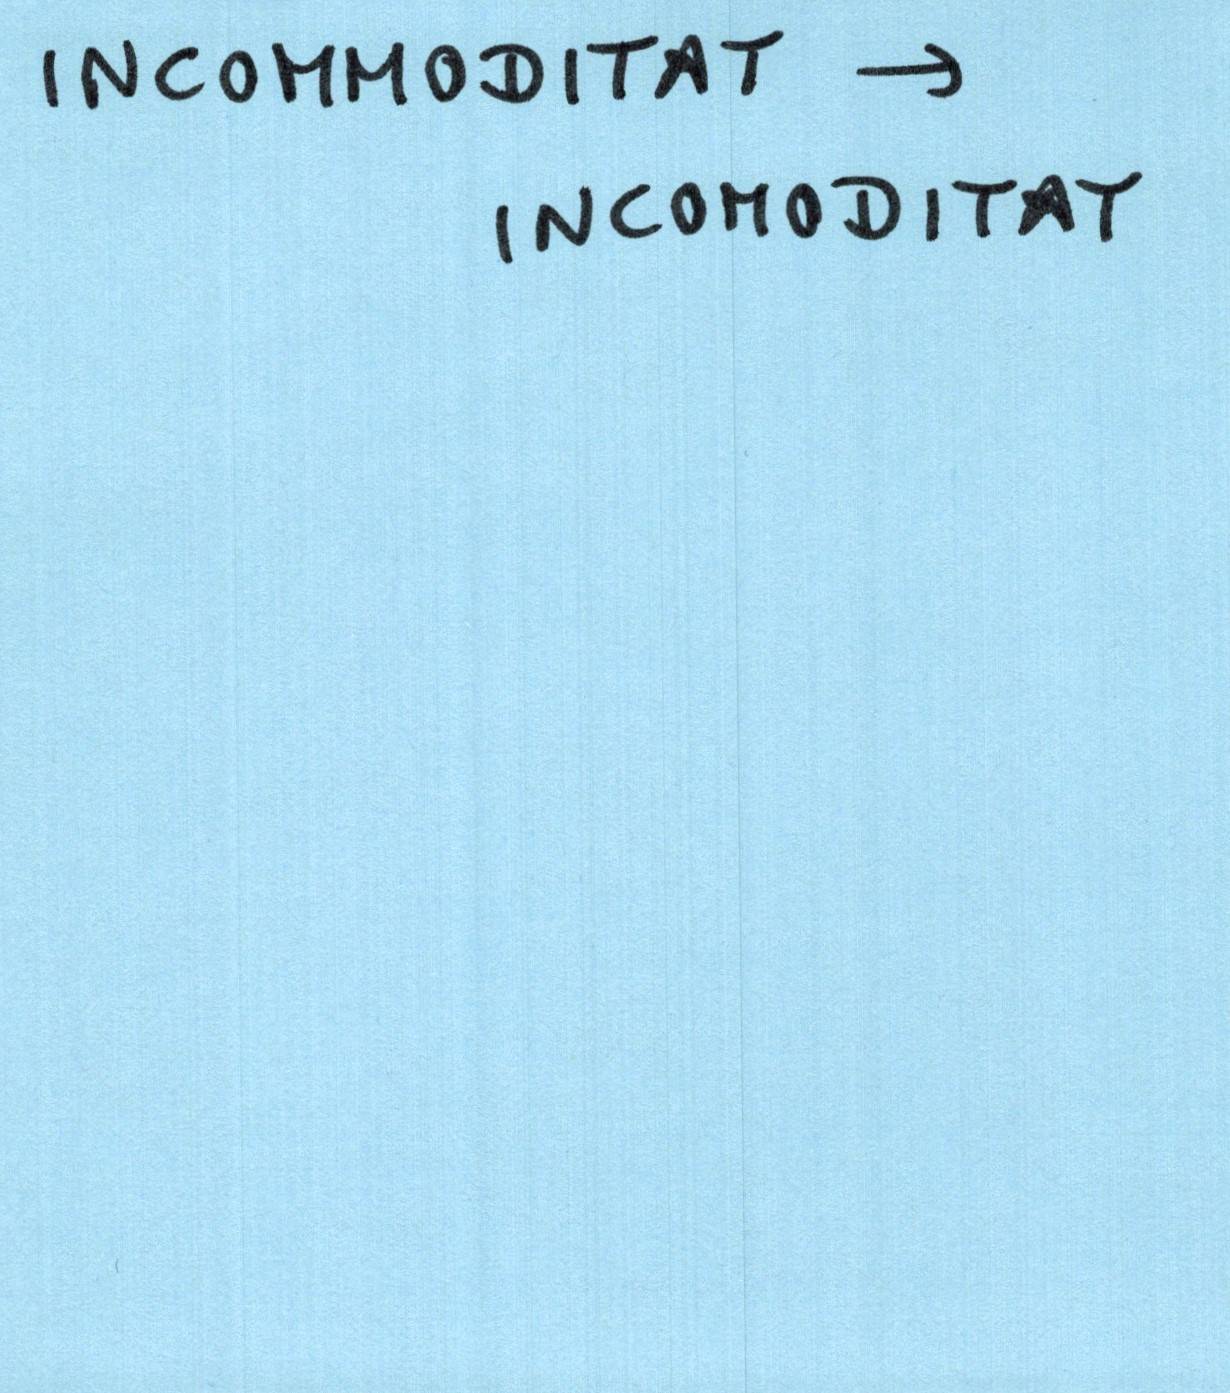 INCOMMODITAT →
INCOMODITAT